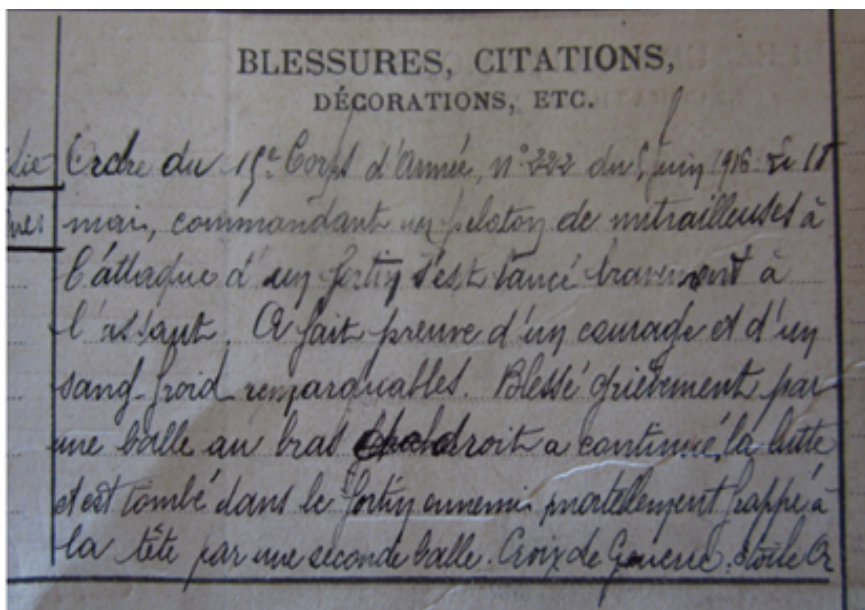 BLESSURES, CITATIONS,
DÉCORATIONS, ETC.
Ordre du 15e Corps d'Armée, n° 222 du juin 1916. Le 18
mai, commandant un peloton de mitrailleuses à
l'attaque d'un fortin s'est lancé bravement à
l'assaut. A fait preuve d'un courage et d'un
sang-froid remarquables. Blessé grièvement par
une balle au bras droit a continué la lutte
et est tombé dans le fortin ennemi mortellement frappé à
la tête par une seconde balle. Croix de Guerre: étoile Or